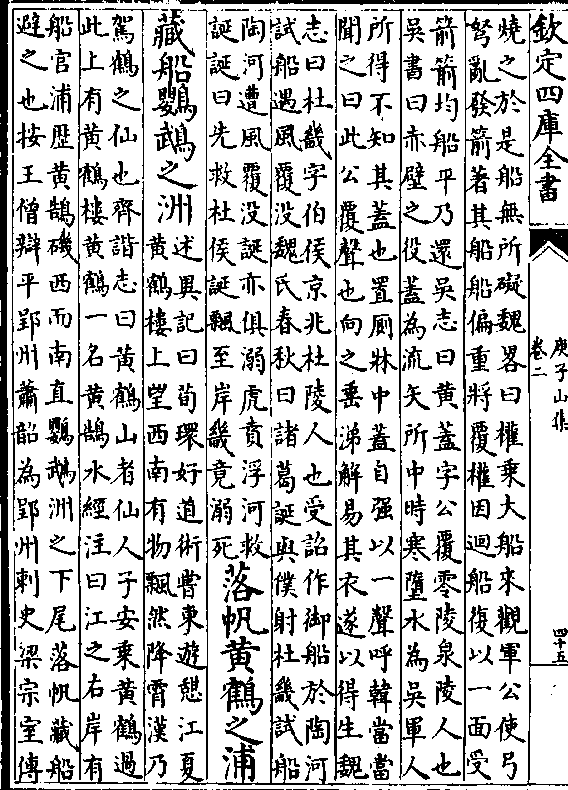 欽定四庫全書
庾子山集
卷二
四十五
燒之於是船無所礙魏畧曰權乘大船來觀軍公使弓
弩亂發箭著其船船偏重將覆權因迴船復以一面受
箭箭均船平乃還吳志曰黄蓋字公覆零陵泉陵人也
吳書曰赤壁之役蓋為流矢所中時寒墮水為吳軍人
所得不知其蓋也置厠牀中蓋自强以一聲呼韓當當
聞之曰此公覆聲也向之垂涕解易其衣遂以得生魏
志曰杜畿字伯侯京兆杜陵人也受詔作御船於陶河
試船遇風覆没魏氏春秋曰諸葛誕與僕射杜畿試船
陶河遭風覆没誕亦俱溺虎賁浮河救
誕誕曰先救杜侯誕飄至岸畿竟溺死
落帆黄鶴之浦
藏船鸚鵡之洲
述異記曰荀環好道術嘗東遊憇江夏
黄鶴樓上望西南有物飄然降霄漢乃
駕鶴之仙也齊諧志曰黄鶴山者仙人子安乘黄鶴過
此上有黄鶴樓黄鶴一名黄鵠水經注曰江之右岸有
船官浦歴黄鵠磯西而南直鸚鵡洲之下尾落帆藏船
避之也按王僧辯平郢州蕭韶為郢州刺史梁宗室傳